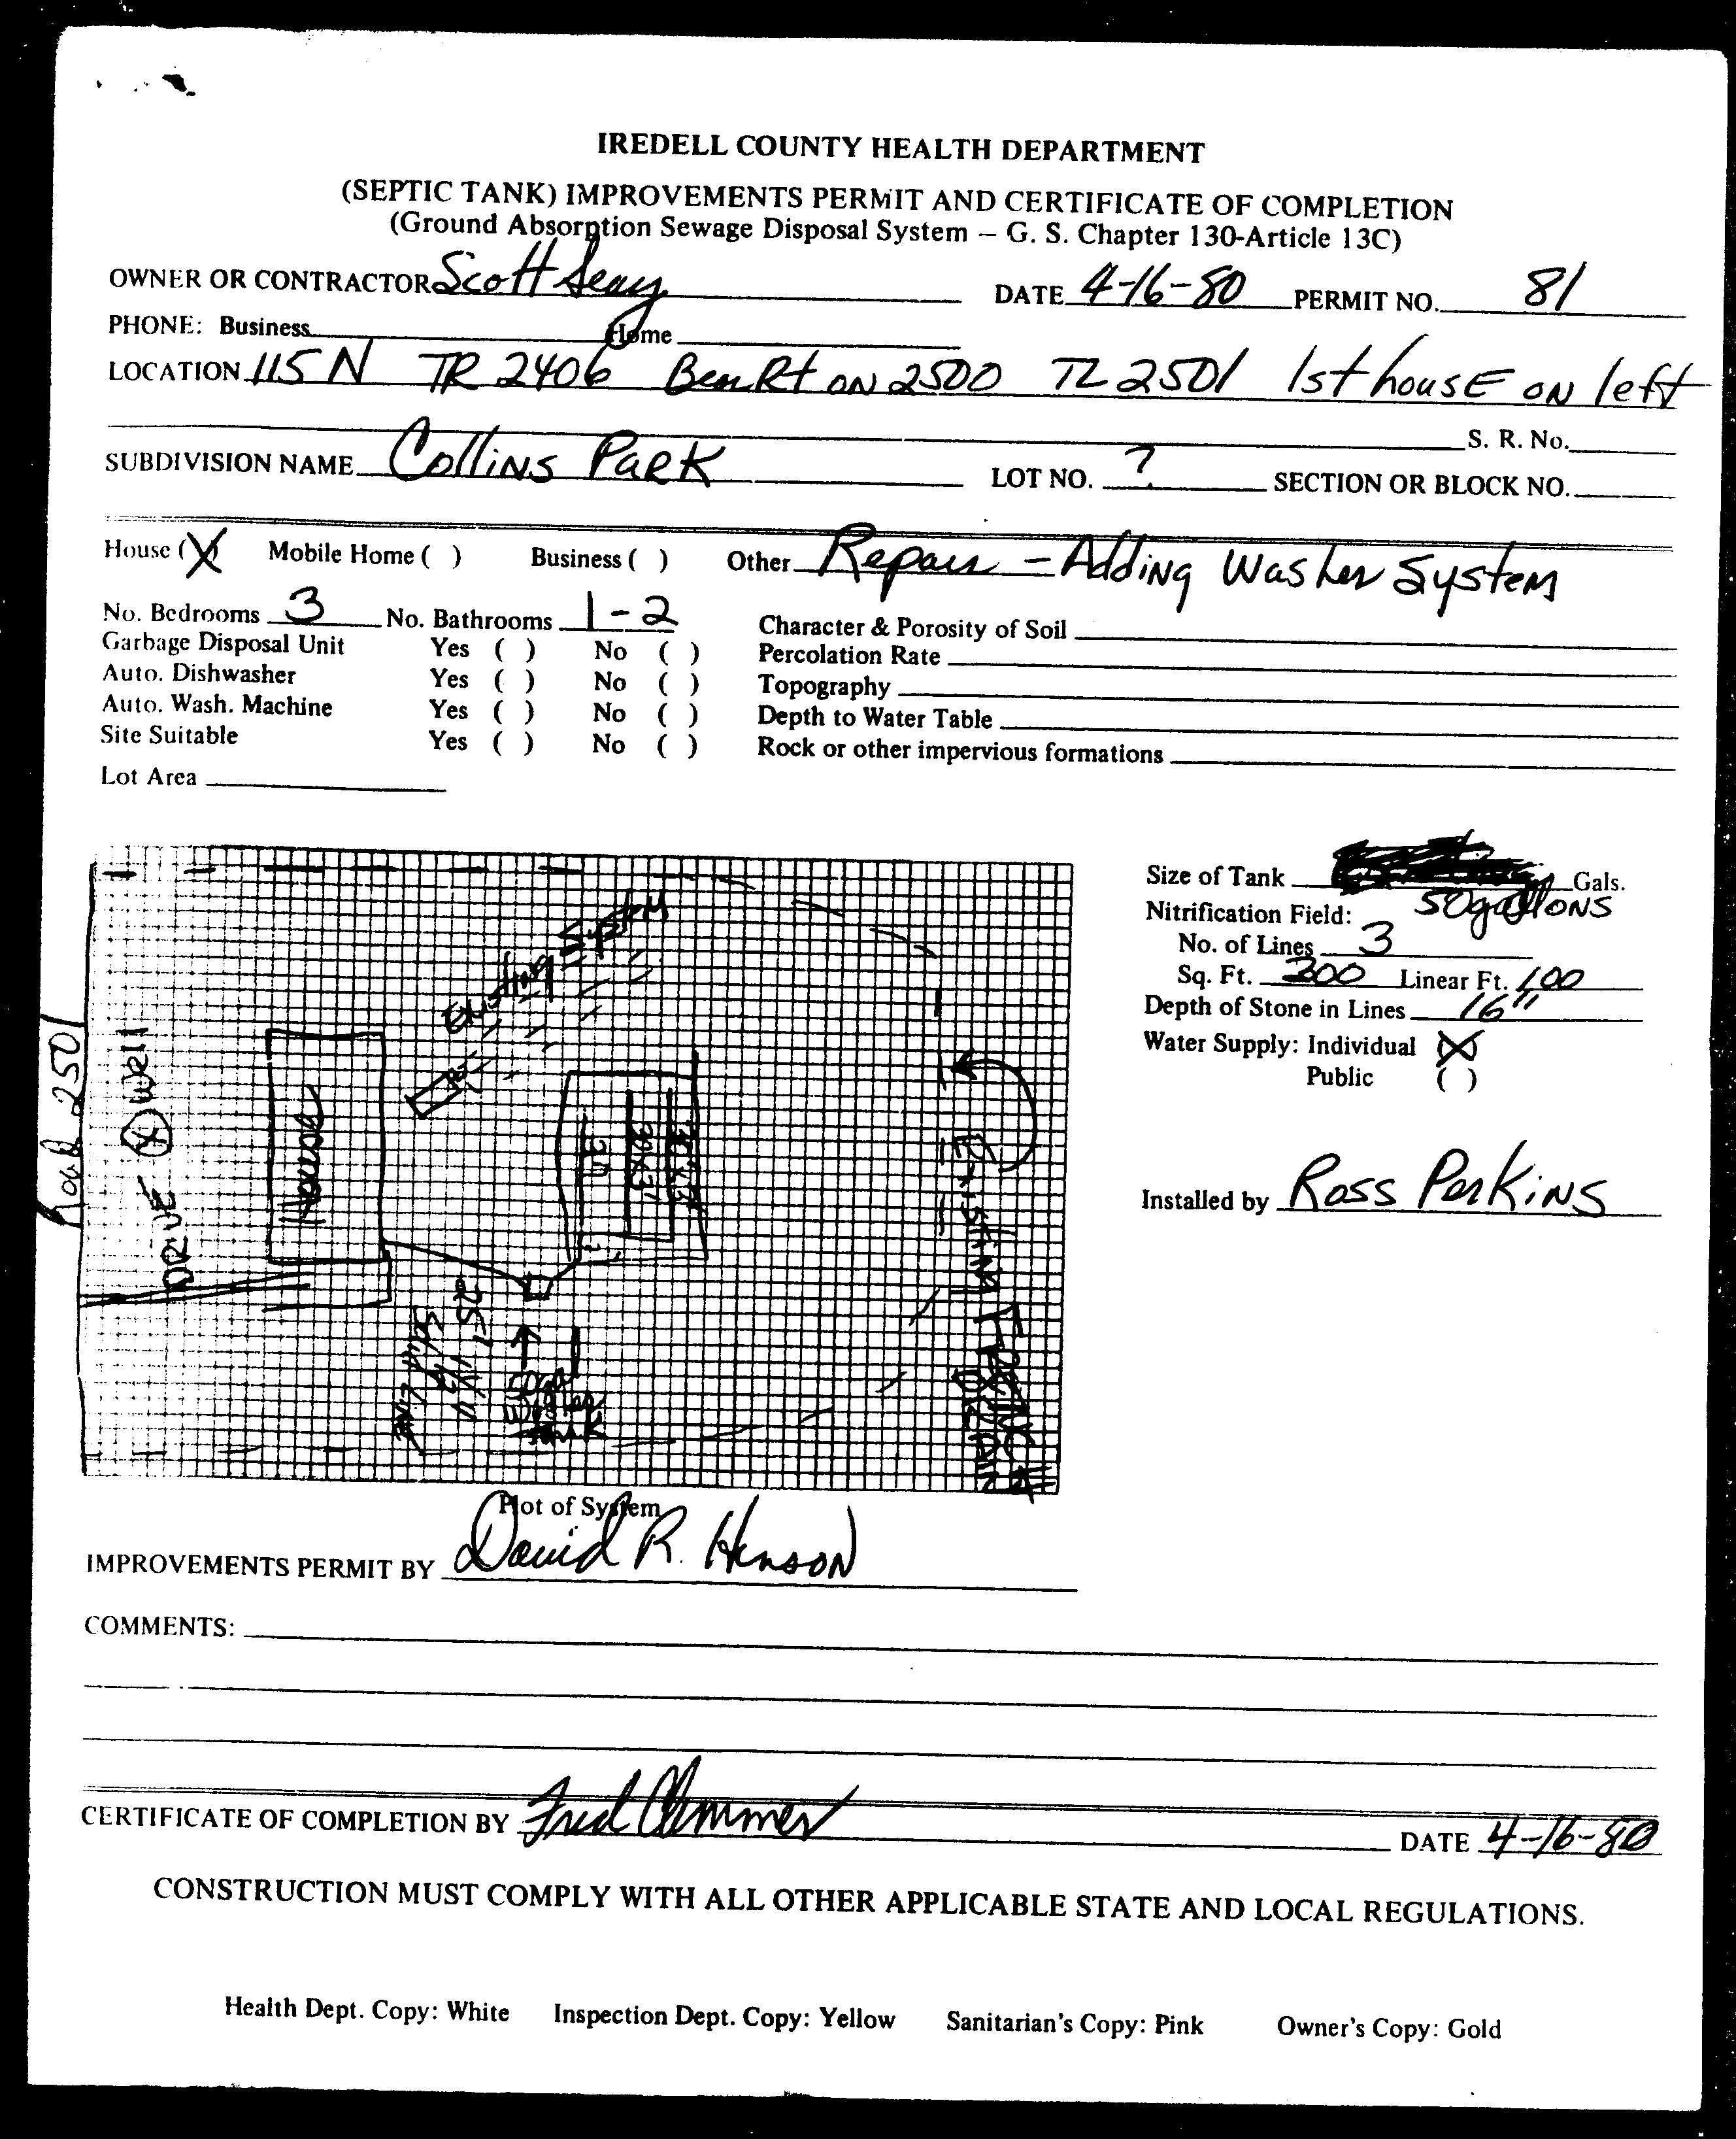 IREDELL COUNTY HEALTH DEPARTMENT
(SEPTIC TANK) IMPROVEMENTS PERMIT AND CERTIFICATE OF COMPLETION
(Ground Absorption Sewage Disposal System – G. S. Chapter 130-Article 13C)
OWNER OR CONTRACTOR Scott Seay DATE 4-16-80 PERMIT NO. 81
PHONE: Business Home
LOCATION 115 N TR 2406 Bear Rt ON 2500 TL 2501 1st housE ON left
S. R. No.
SUBDIVISION NAME Collins Park LOT NO. ? SECTION OR BLOCK NO.
House (X) Mobile Home ( ) Business ( ) Other Repair - Adding Washer System
No. Bedrooms 3 No. Bathrooms 1-2 Character & Porosity of Soil
Garbage Disposal Unit Yes ( ) No ( ) Percolation Rate
Auto. Dishwasher Yes ( ) No ( ) Topography
Auto. Wash. Machine Yes ( ) No ( ) Depth to Water Table
Site Suitable Yes ( ) No ( ) Rock or other impervious formations
Lot Area
Size of Tank Gals.
50 gallons
Nitrification Field:
No. of Lines 3
Sq. Ft. 300 Linear Ft. 100
Depth of Stone in Lines 16"
Water Supply: Individual (X)
Public ( )
Installed by Ross Perkins
Road 2501
Well
DRIVE
House
Existing System
30
30x3'
25'
Solid Line
Existing
Plot of System
IMPROVEMENTS PERMIT BY David R. Henson
COMMENTS:
CERTIFICATE OF COMPLETION BY Fred Clemmer DATE 4-16-80
CONSTRUCTION MUST COMPLY WITH ALL OTHER APPLICABLE STATE AND LOCAL REGULATIONS.
Health Dept. Copy: White Inspection Dept. Copy: Yellow Sanitarian's Copy: Pink Owner's Copy: Gold